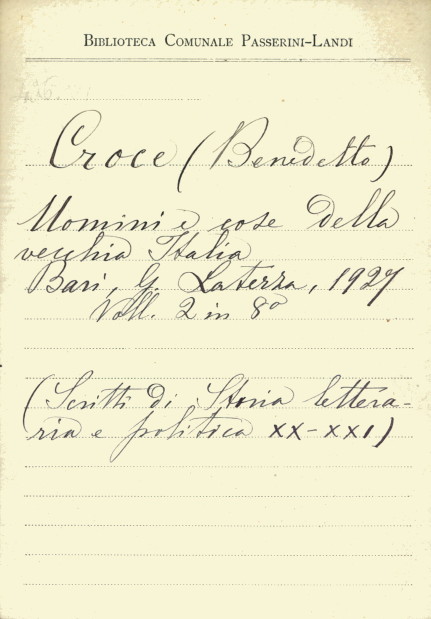 BIBLIOTECA COMUNALE PASSERINI-LANDI
Croce (Benedetto)
Uomini e cose della
vecchia Italia
Bari, G. Laterza, 1927
Voll. 2 in 8º
(Scritti di Storia lettera-
ria e politica XX-XXI)